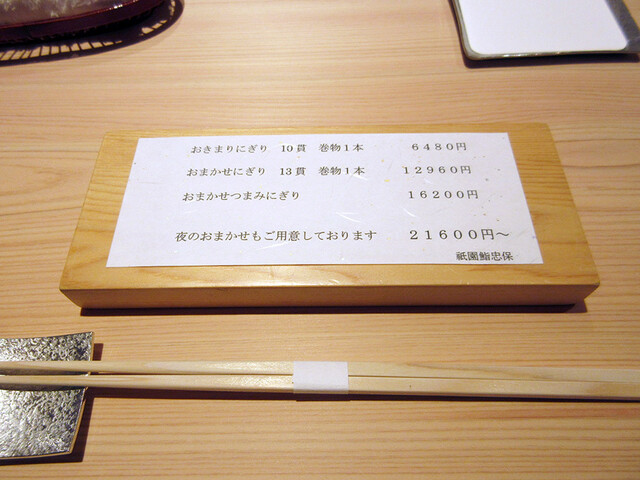 おきまりにぎり　10貫　巻物1本　6480円
おまかせにぎり　13貫　巻物1本　12960円
おまかせつまみにぎり　16200円
夜のおまかせもご用意しております　21600円～
祇園鮨忠保